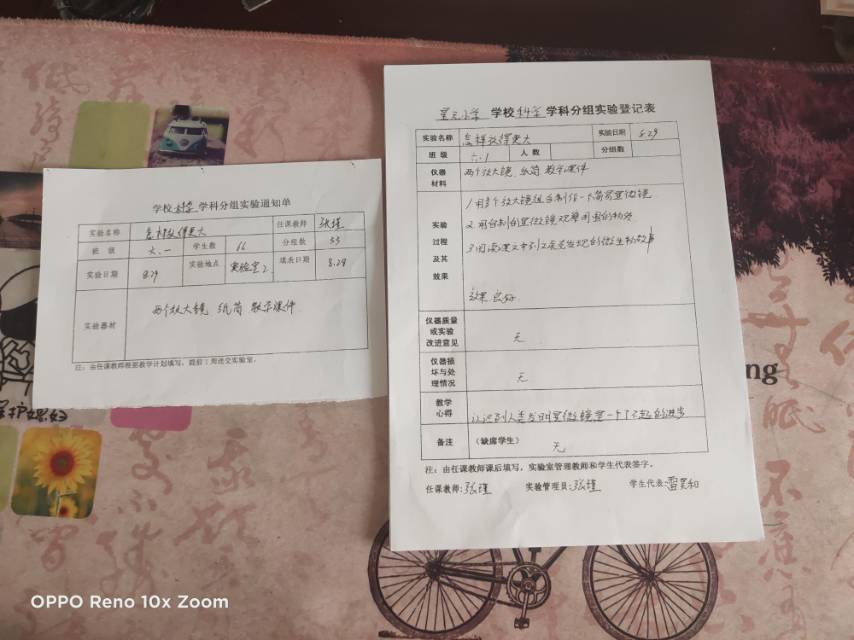 学校科学学科分组实验通知单
实验名称 怎样放得更大 任课教师 张瑾
班级 六.一 学生数 66 分组数 33
实验日期 8.29 实验地点 实验室2 填表日期 8.29
实验器材 两个放大镜 纸筒 教学课件
注:由任课教师根据教学计划填写,提前1周送交实验室。
小学 学校科学学科分组实验登记表
实验名称 怎样放得更大 实验日期 8.29
班级 六.1 人数 分组数
仪器材料 两个放大镜 纸筒 教学课件
实验过程及其效果
1.用多个放大镜组合制作一个简易显微镜
2.用自制的显微镜观察周围的物体
3.阅读课文中列文虎克发现的微生物故事
效果 良好
仪器质量或实验改进意见 无
仪器损坏与处理情况 无
教学心得 认识到人类发明显微镜是一个了不起的进步
备注 (缺席学生) 无
注:由任课教师课后填写,实验室管理教师和学生代表签字。
任课教师:张瑾 实验管理员:张瑾 学生代表:雷昊和
ng
OPPO Reno 10x Zoom